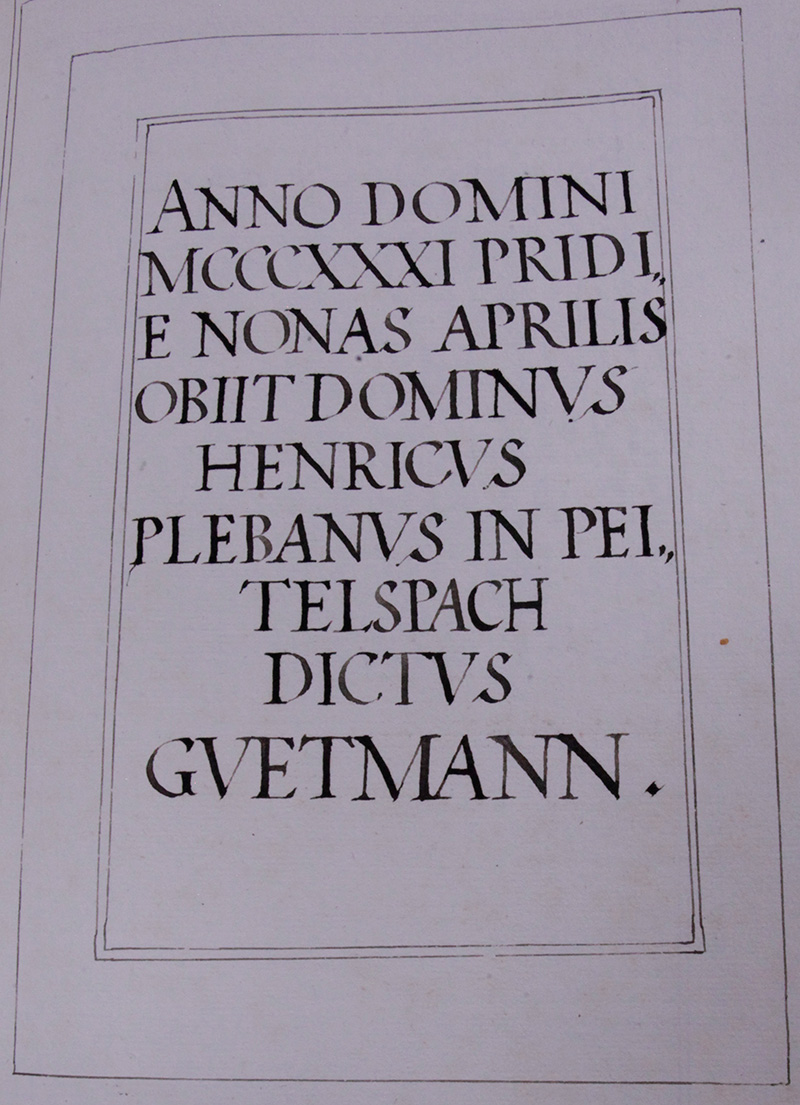 ANNO DOMINI
MCCCXXXI PRIDI,,
E NONAS APRILIS
OBIIT DOMINVS
HENRICVS
PLEBANVS IN PEI,,
TELSPACH
DICTVS
GVETMANN.